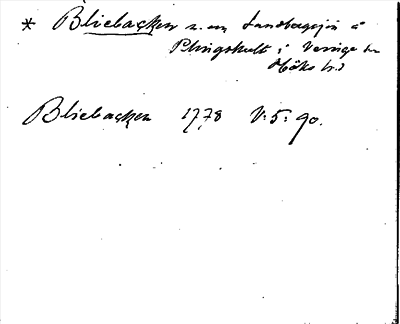 * Bliebacken n. om Landbogsjö å
Plingshult i Veinge sn
Höks hd
Bliebacken 1778 V: 5: 90.